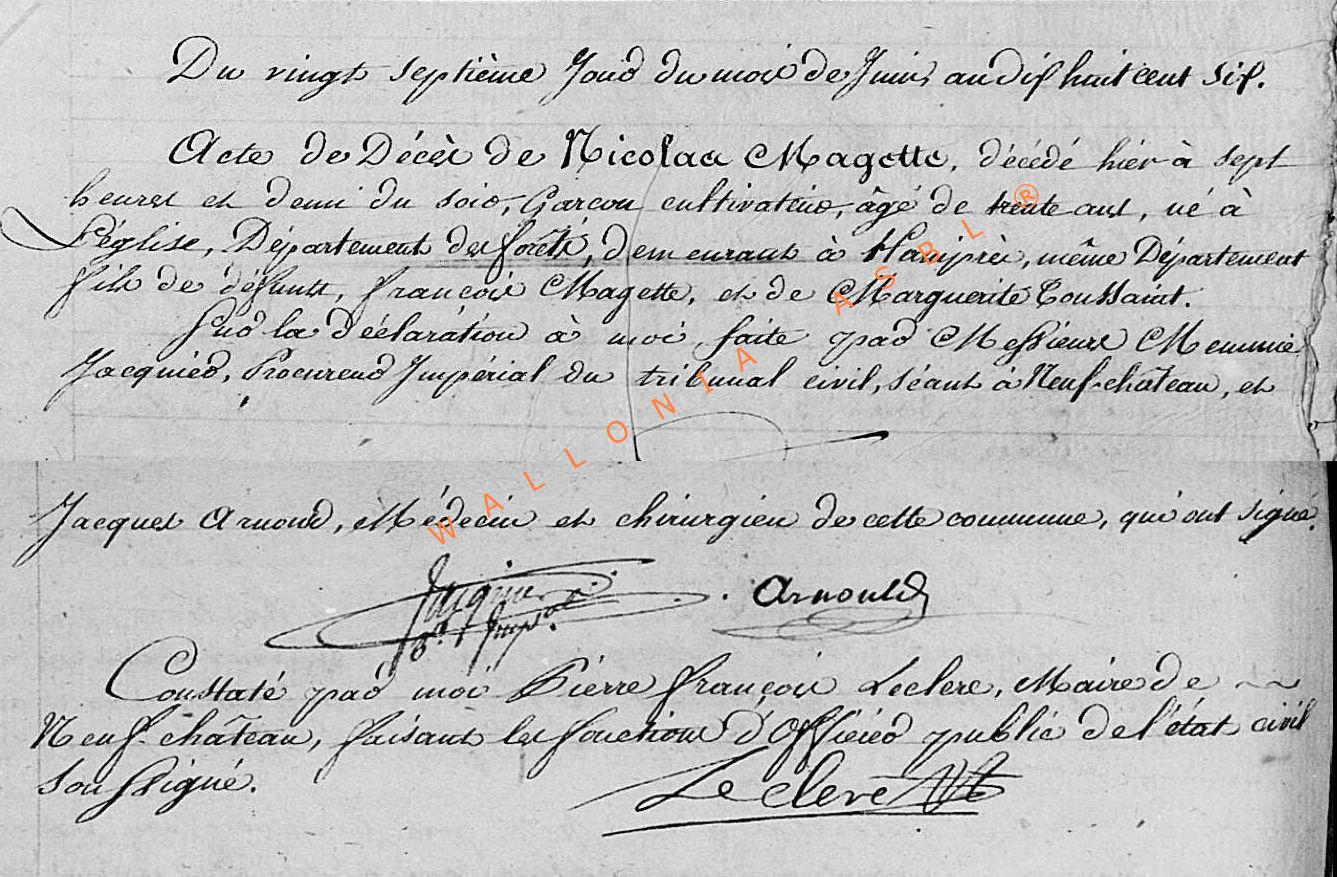 Du vingt septième Jour du mois de Juin, an dix huit cent six.
Acte de Décès de Nicolas Magette, décédé hièr à sept
heures et demi du soir, Garcon cultivateur, âgé de trente ans, né à
L'église, Département des forêts, demeurant à Haniprèz, même Département
fils de défunts, françois Magette, et de Marguerite Toussaint.
Sur la Déclaration à moi, faite par Messieurs Memmie
Jacquier, Procureur Impérial du tribunal civil, séant à Neuf-château, et
Jacques Arnould, Médecin et chirurgien de cette commune, qui ont signé.
Jacquier Arnould
pr. Impal.
Constaté par moi Pièrre françois Leclere, Maire de
Neuf-château, faisant les fonctions d'Officier public de l'état civil
soussigné.
Leclere
WALLONIA ASBL ®